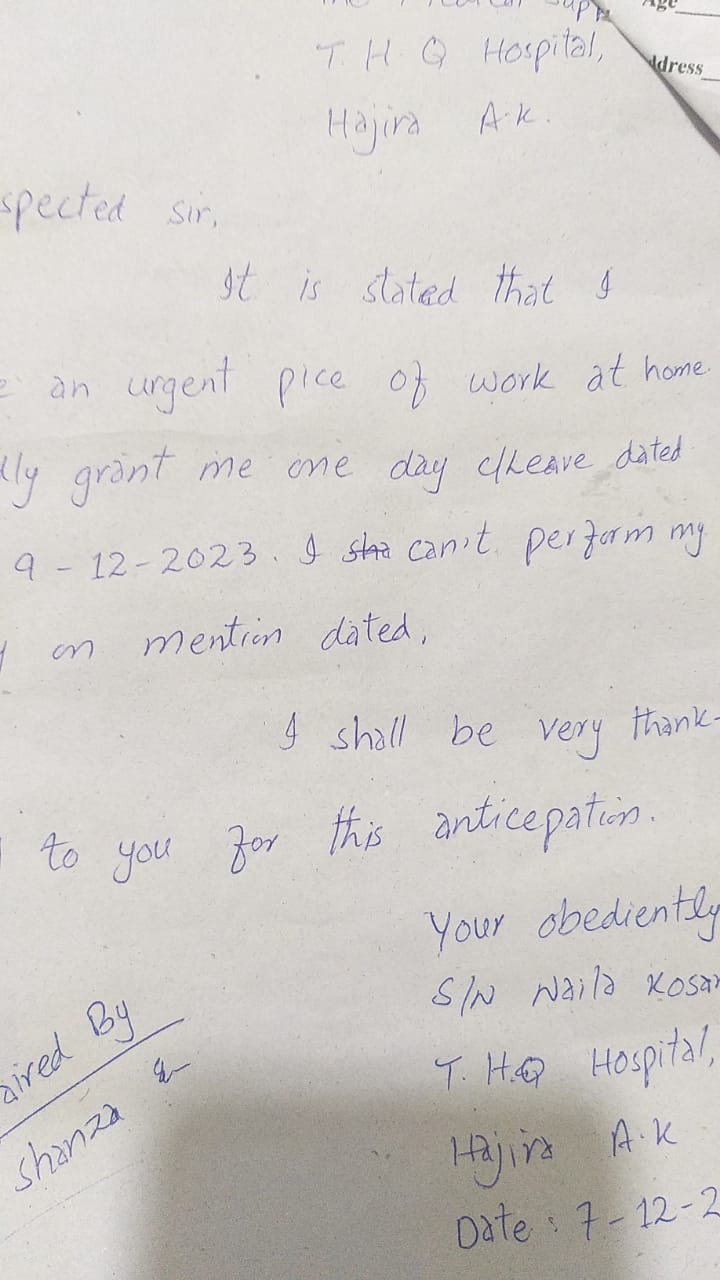 Age
ddress
The Medical Supp
T. H. Q Hospital,
Hajira A.K.
spected sir,
It is stated that I
e an urgent pice of work at home.
dly grant me one day c/Leave dated
9-12-2023. I sha can't perform my
y on mention dated,
I shall be very thank-
l to you for this anticepation.
Your obediently
S/N Naila Kosar
T. H.Q Hospital,
Hajira A.K
Date: 7-12-2
aired By
Shanza